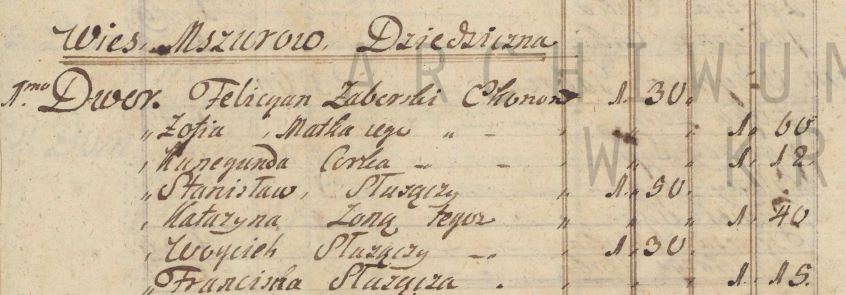 Wies, Mszurow. Dziedziczna
1.mo Dwor. Felicyan Zaberski Ekonom 1. 30.
„ Zofia, Matka iego „ - „ „ „ 1. 60
„ Kunegunda Corka - - „ „ „ 1. 12.
„ Stanisław, Słuzący „ 1. 50.
„ Katarzyna Zona tegoz „ „ „ 1. 40
„ Woyciek Słuzący - „ 1. 30.
„ Franciska Słuząca . „ „ „ 1. 15.
ARCHIWUM
W KR